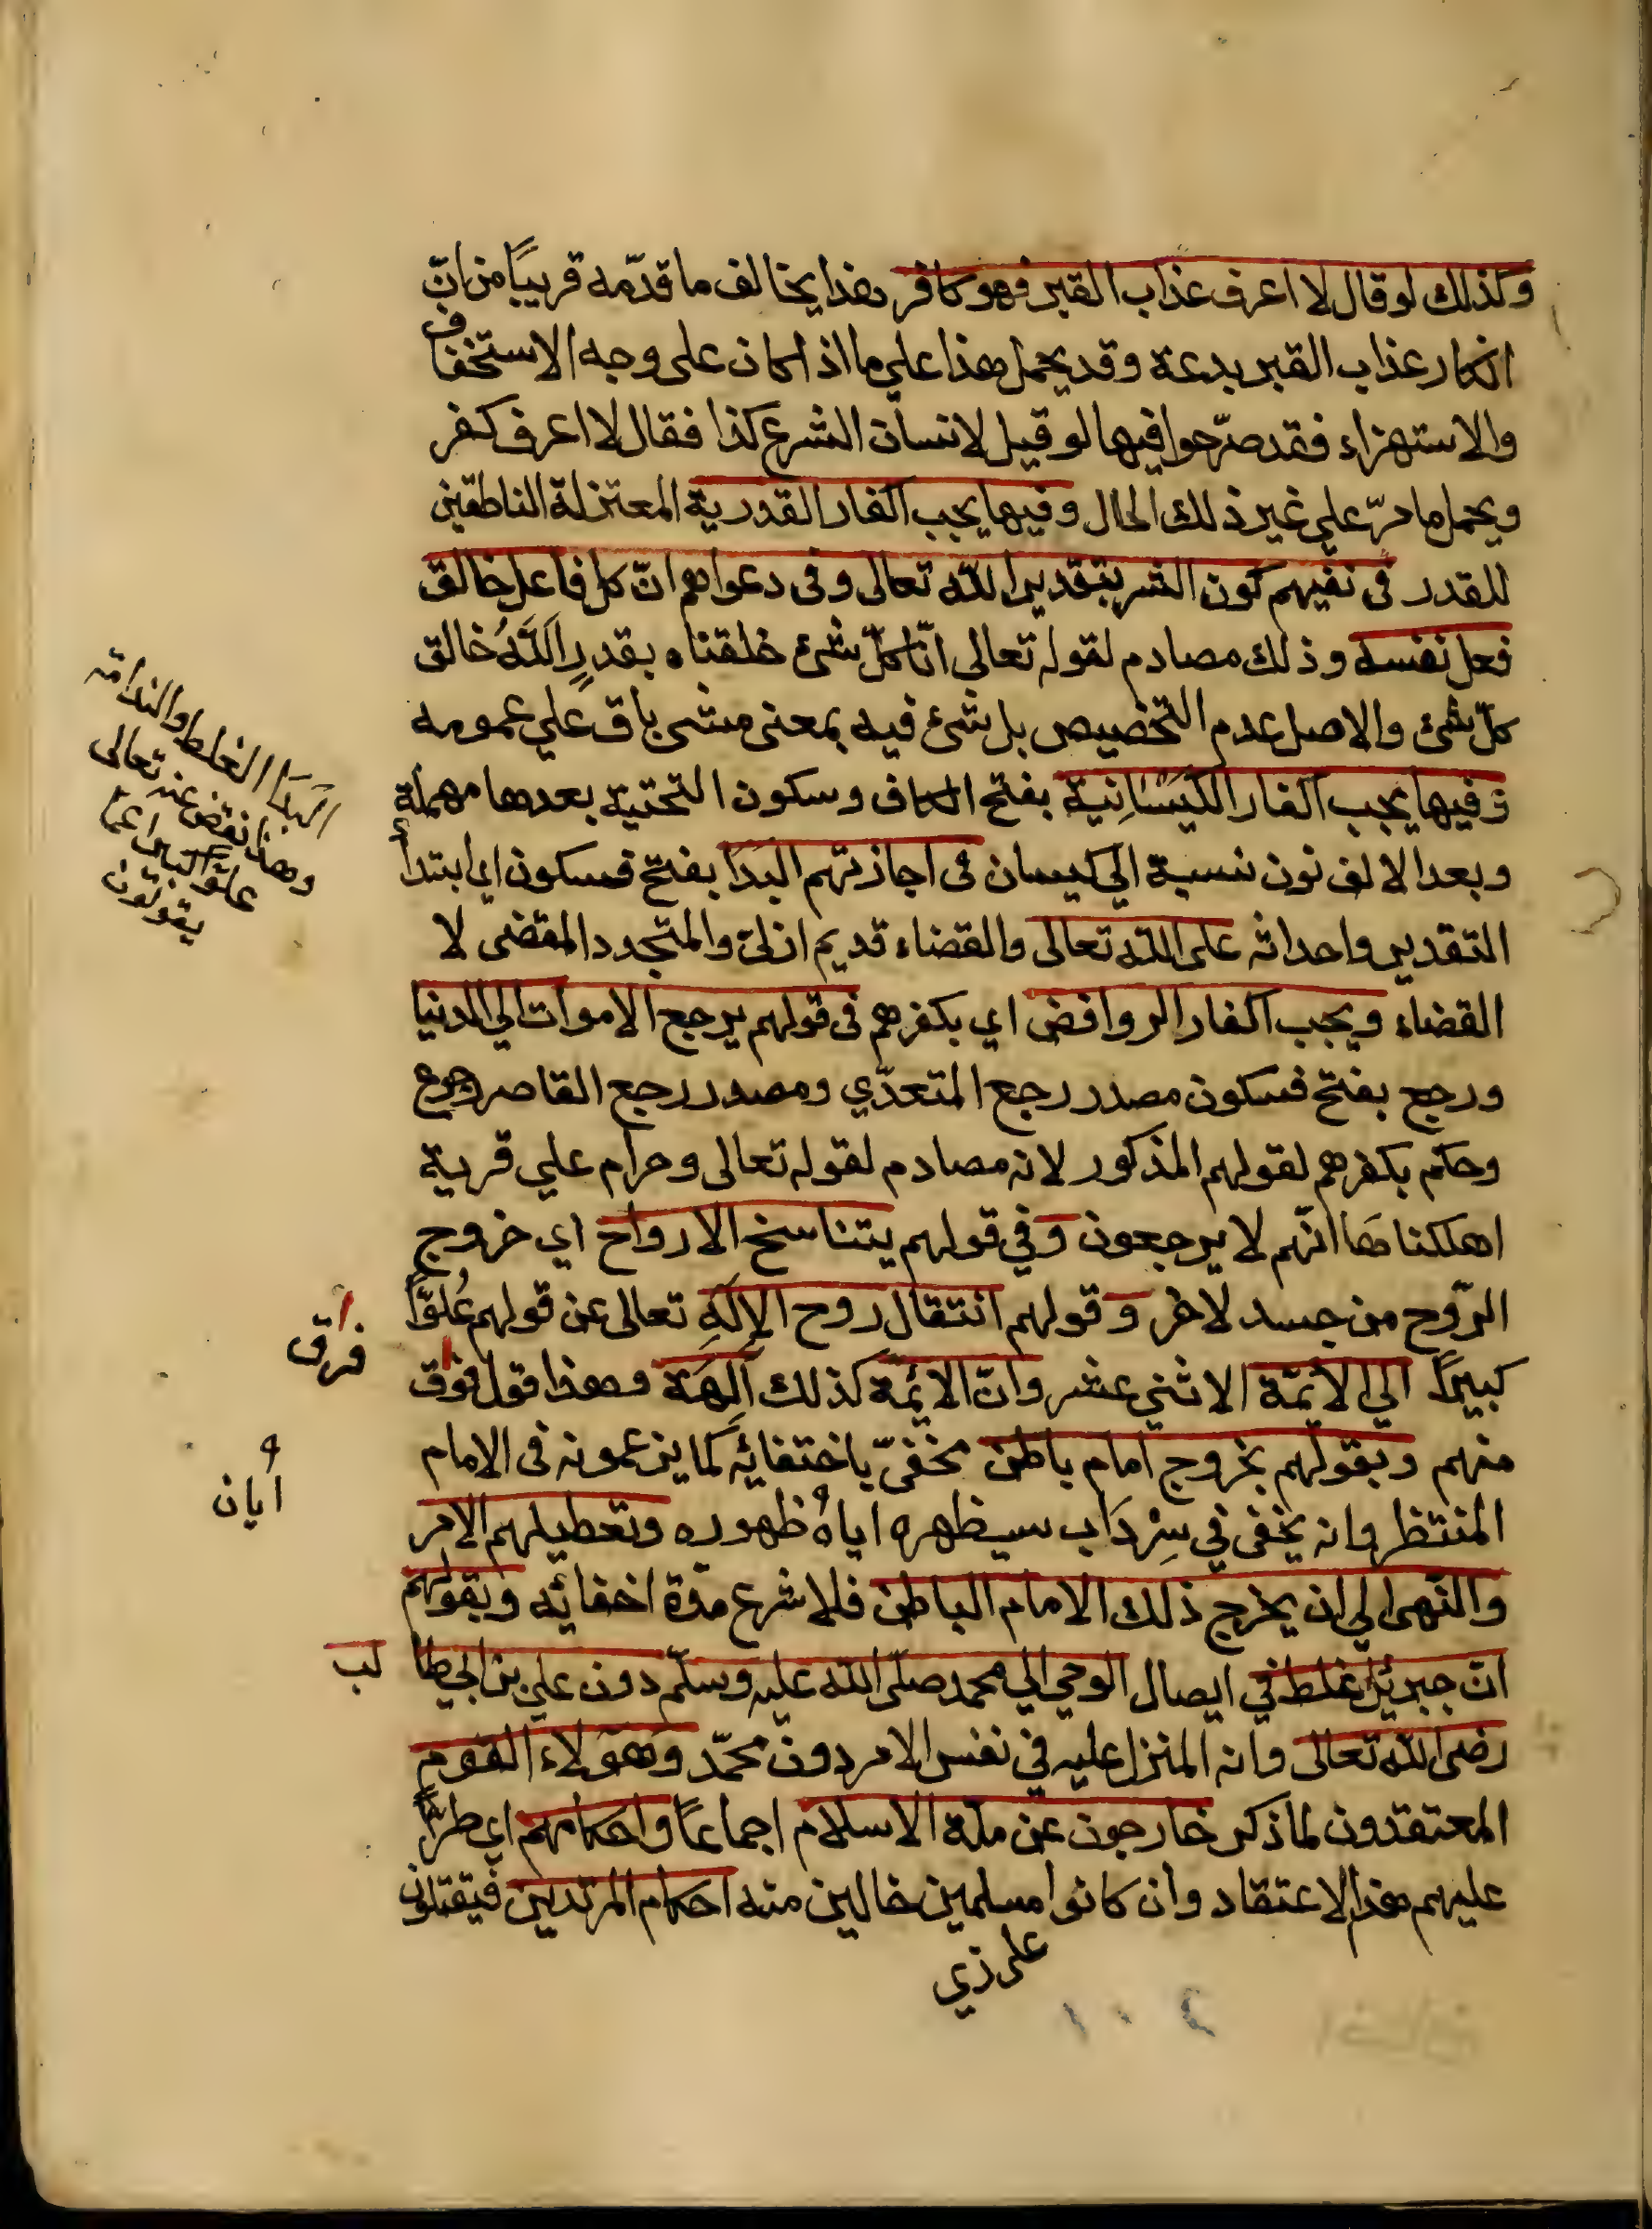 وكذلك لو قال لا اعرف عذاب القبر فهو كافر هذا يخالف ما قدّمه قريبًا من انّ
انكار عذاب القبر بدعة وقد يحمل هذا علي ما اذا كان على وجه الاستخفاف
والاستهزاء فقد صرّحوا فيها لو قيل لانسان الشرع كذا فقال لا اعرف كفر
ويحمل ما مرّ علي غير ذلك الحال وفيها يجب اكفار القدرية المعتزلة الناطقين
للقدر في نفيهم كون الشر بتقدير الله تعالى وفى دعواهم انّ كل فاعل خالق
فعل نفسه وذلك مصادم لقوله تعالى انّا كلّ شئ خلقناه بقدرٍ اَللّهُ خالق
كلّ شئ والاصل عدم التخصيص بل شئ فيه بمعنى منشى باق علي عمومه
وفيها يجب اكفار الكَيْسَانِية بفتح الكاف وسكون التحتية بعدها مهملة
وبعد الالف نون نسبة الي كيسان فى اجازتهم البَدَا بفتح فسكون اي ابتدأ
التقدير واحداثه على الله تعالى والقضاء قديم ازلىّ والمتجدد المقضى لا
القضاء ويجب اكفار الروافض اي بكفرهم فى قولهم يرجع الاموات الي الدنيا
ورجع بفتح فسكون مصدر رجع المتعدّي ومصدر رجع القاصر رجوع
وحكم بكفرهم لقولهم المذكور لانه مصادم لقوله تعالى وحرام علي قرية
اهلكناها انّهم لا يرجعون وفي قولهم يتناسخ الارواح اي خروج
الرّوح من جسد لاخر وقولهم انتقال روح الإلَهِ تعالى عن قولهم عُلوًّا
كبيرًا الي الائمّة الاثني عشر وانّ الائِمّة كذلك آلِهَة وهذا قول فوق
منهم وبقولهم بخروج امام باطن مخفىّ باختفائِه كما يزعمونه فى الامام
المنتظر وانه يخفى في سِرْدَاب سيظهره اياهُ ظهوره وتعطيلهم الامر
والنّهى الي ان يخرج ذلك الامام الباطن فلا شرع مدّة اخفائه وبقولهم
انّ جبرئيل غلط في ايصال الوحي الي محمد صلّى الله عليه وسلّم دون علي بن ابي طا لب
رضى الله تعالى وانه المنزل عليه في نفس الامر دون محمّد وهؤلاء القوم
المعتقدون لما ذكر خارجون عن ملة الاسلام اجماعًا واحكامهم اي طرأ
عليهم هذا الاعتقاد وان كانوا مسلمين خالين منه احكام المرتدين فيقتلون
على زي
البَدَا الغلط والندامة
وهذا نقض عنه تعالى
علوًّا كبيرا عمّا
يقولون
فرق
أيان